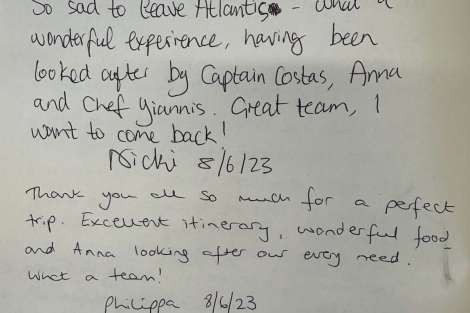 So sad to leave Atlantis - what a
wonderful experience, having been
looked after by Captain Costas, Anna
and Chef Yiannis. Great team, I
want to come back!
Nicki 8/6/23
Thank you all so much for a perfect
trip. Excellent itinerary, wonderful food
and Anna looking after our every need.
What a team!
Philippa 8/6/23